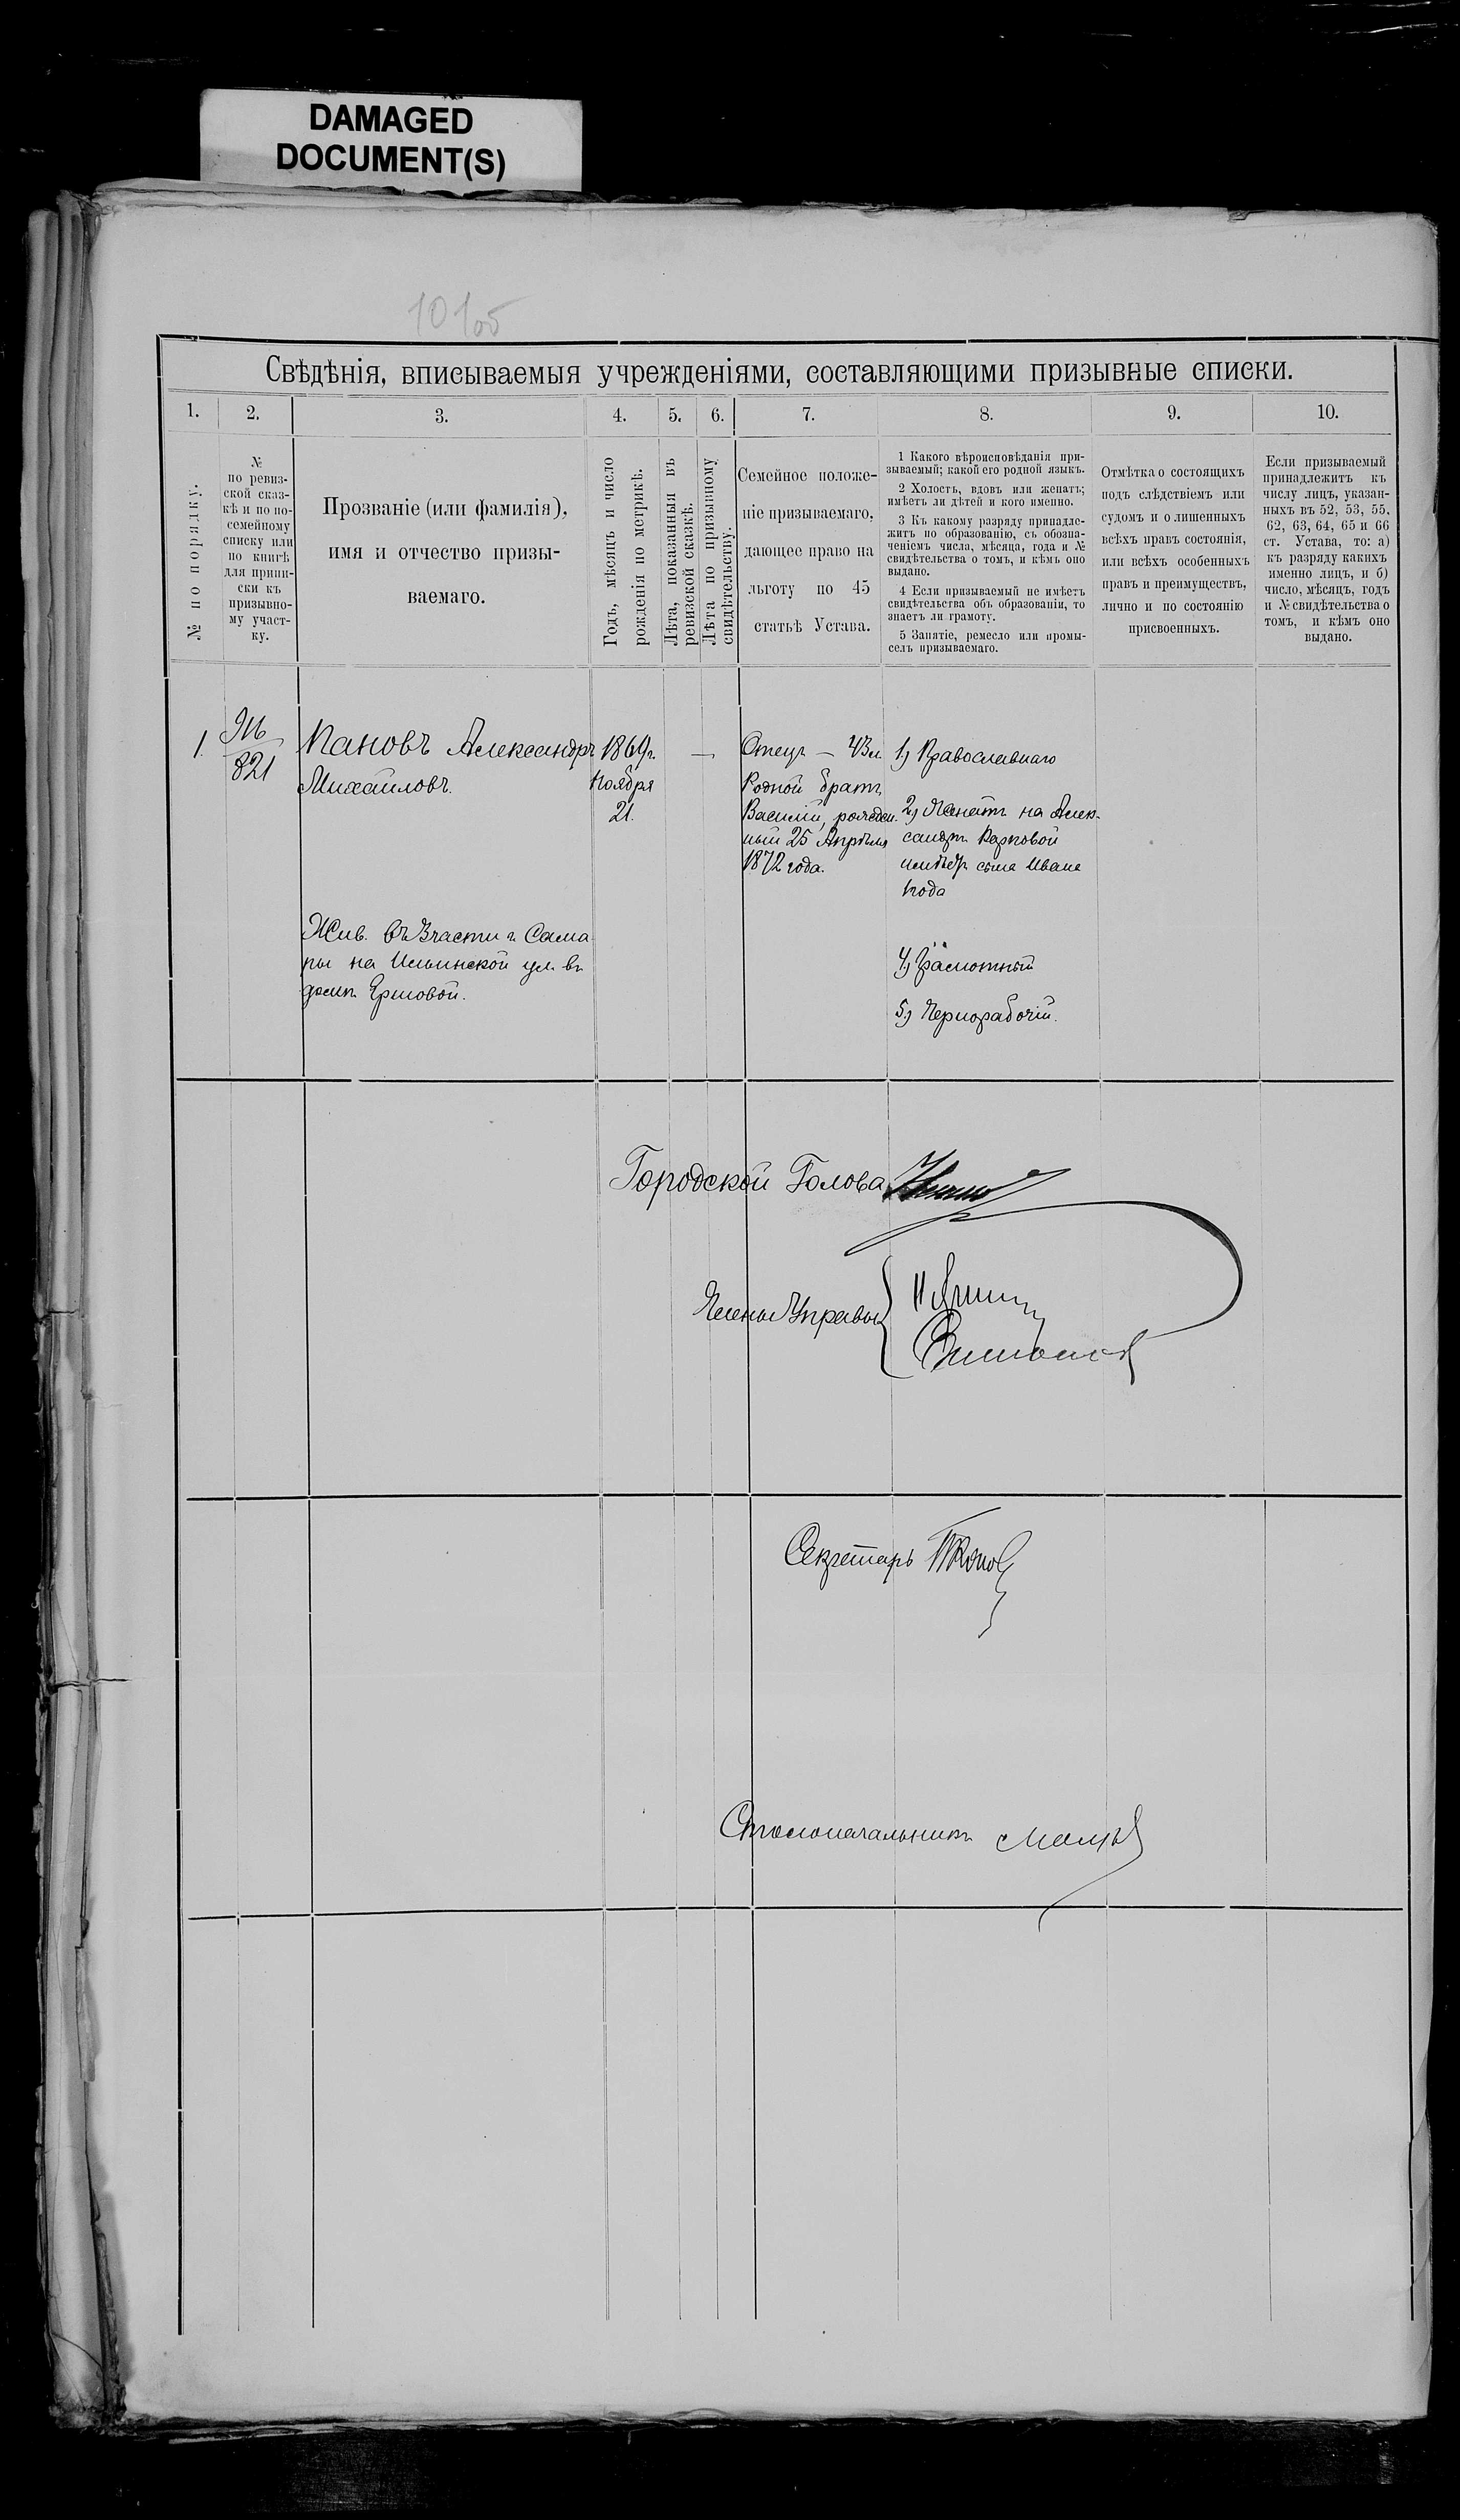 DAMAGED
DOCUMENT(S)
101об
Свѣдѣнія, вписываемыя учрежденіями, составляющими призывные списки.
1. 2. 3. 4. 5. 6. 7. 8. 9. 10.
№ по порядку.
№
по ревиз-
ской сказ-
кѣ и по по-
семейному
списку или
по книгѣ
для припи-
ски къ
призывно-
му участ-
ку.
Прозваніе (или фамилія),
имя и отчество призы-
ваемаго.
Годъ, мѣсяцъ и число
рожденія по метрикѣ.
Лѣта, показанныя въ
ревизской сказкѣ.
Лѣта по призывному
свидѣтельству.
Семейное положе-
ніе призываемаго,
дающее право на
льготу по 45
статьѣ Устава.
1 Какого вѣроисповѣданія при-
зываемый; какой его родной языкъ.
2 Холостъ, вдовъ или женатъ;
имѣетъ ли дѣтей и кого именно.
3 Къ какому разряду принадле-
житъ по образованію, съ обозна-
ченіемъ числа, мѣсяца, года и №
свидѣтельства о томъ, и кѣмъ оно
выдано.
4 Если призываемый не имѣетъ
свидѣтельства объ образованіи, то
знаетъ ли грамоту.
5 Занятіе, ремесло или промы-
селъ призываемаго.
Отмѣтка о состоящихъ
подъ слѣдствіемъ или
судомъ и о лишенныхъ
всѣхъ правъ состоянія,
или всѣхъ особенныхъ
правъ и преимуществъ,
лично и по состоянію
присвоенныхъ.
Если призываемый
принадлежитъ къ
числу лицъ, указан-
ныхъ въ 52, 53, 55,
62, 63, 64, 65 и 66
ст. Устава, то: а)
къ разряду какихъ
именно лицъ, и б)
число, мѣсяцъ, годъ
и № свидѣтельства о
томъ, и кѣмъ оно
выдано.
1
821
Пановъ Александръ
Михайловъ.
Жив. въ 3 части г. Сама
ры на Ильинской ул. въ
домѣ Ершовой.
1869 г.
Ноября
21.
—
Отецъ — 43 л.
Родной братъ
Василій, рожден-
ный 25 Апрѣля
1872 года.
1) Православнаго
2) Женатъ на Алек-
сандрѣ Карповой
имѣетъ сына Ивана
1 года
4) Грамотный
5) Чернорабочій.
Городской Голова
Члены Управы
Секретарь
Столоначальникъ